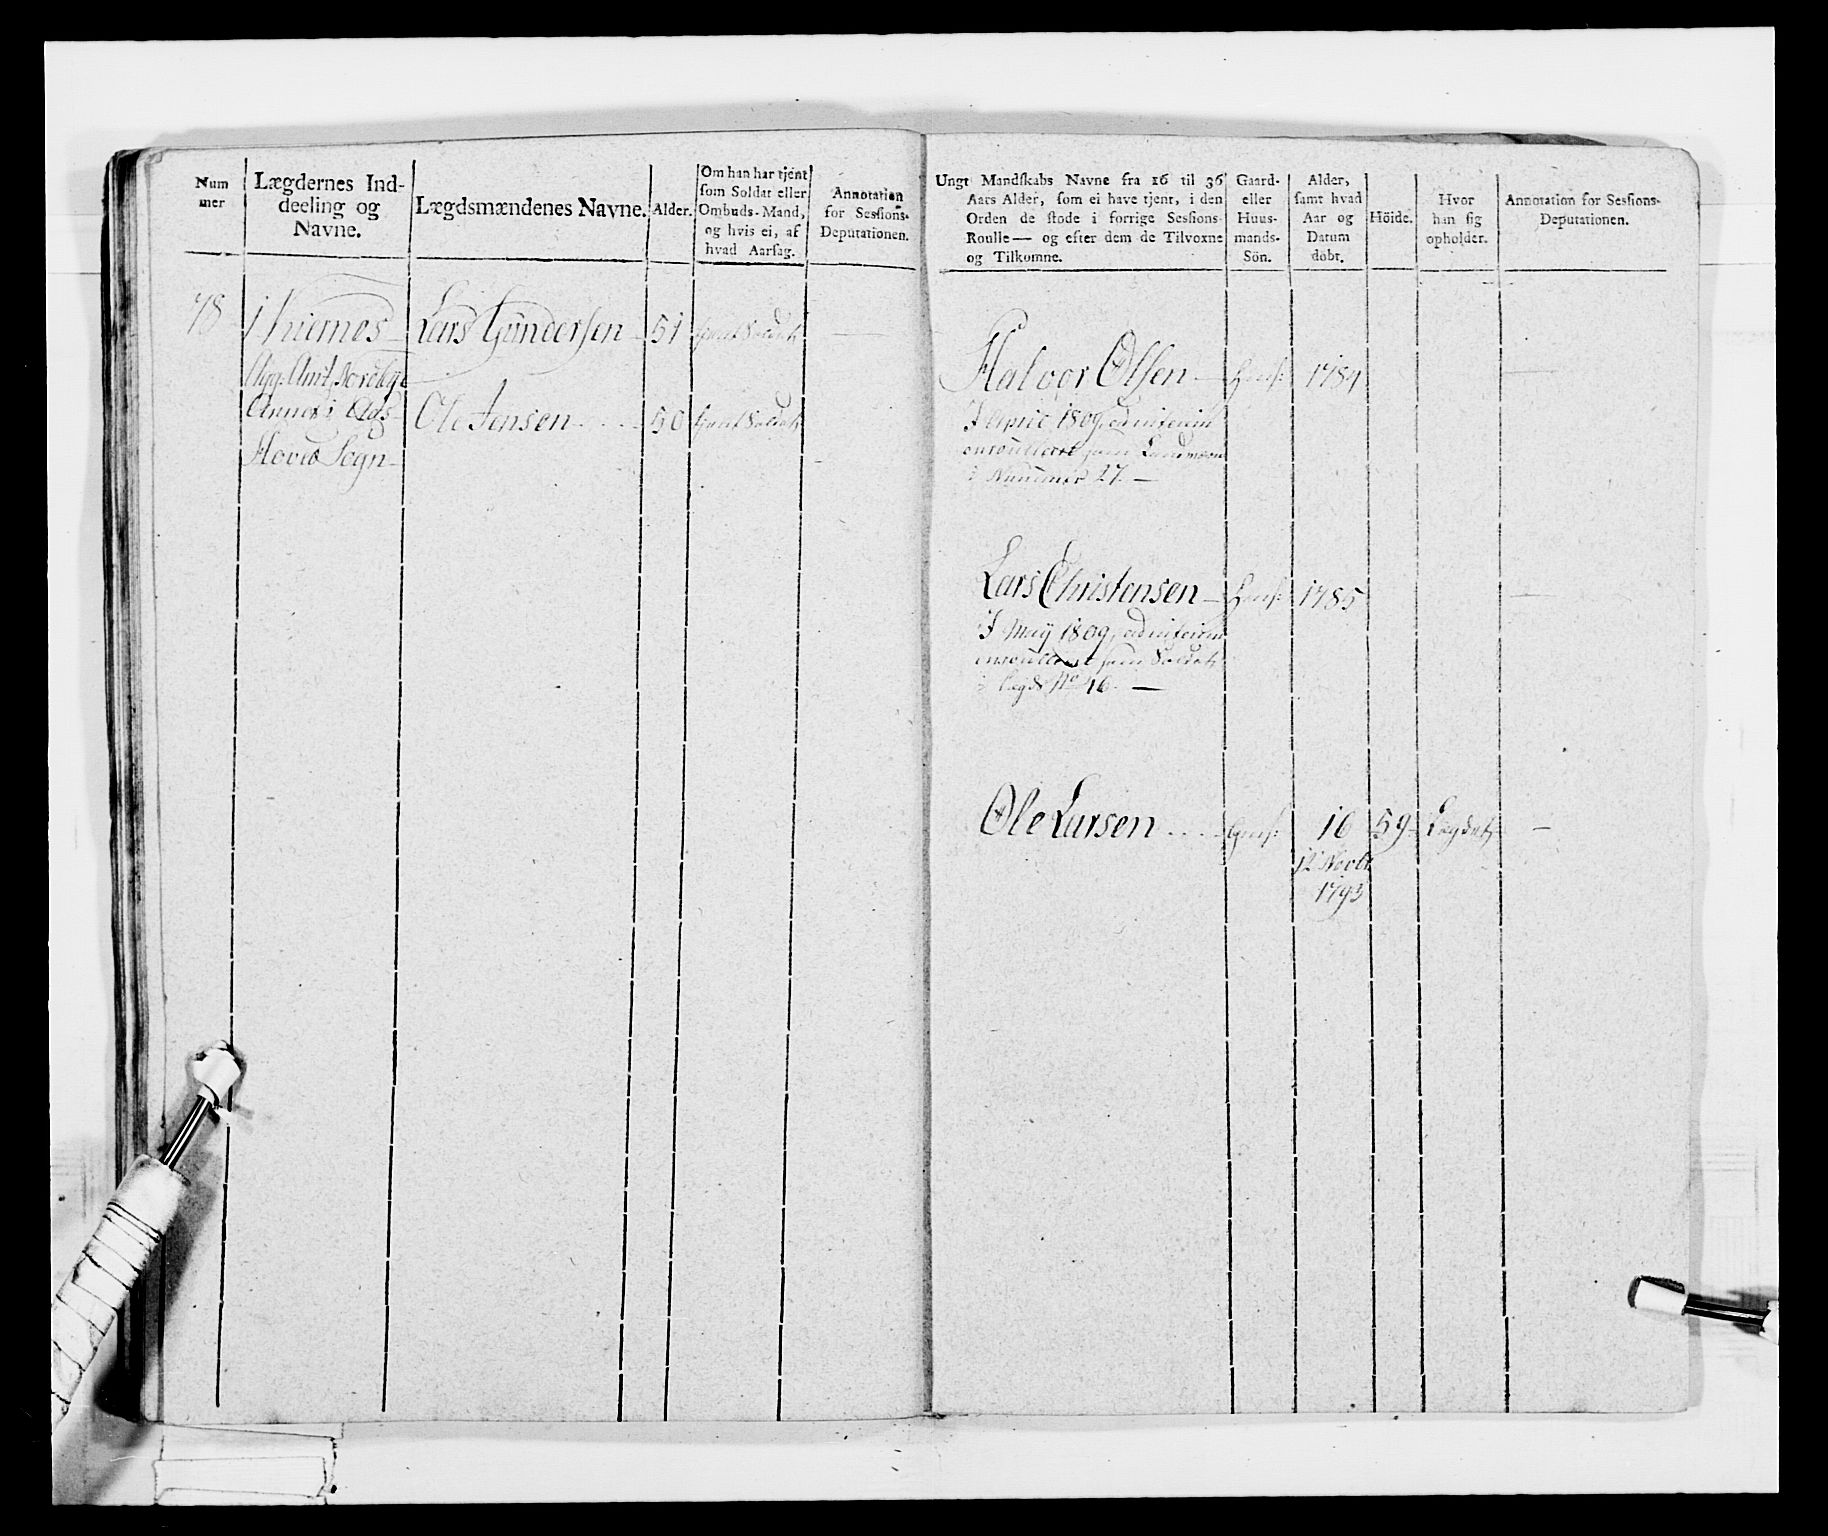 Num
mer
Lægdernes Ind-
deeling og
Navne.
Lægdsmændenes Navne.
Alder.
Om han har tjent
som Soldat eller
Ombuds-Mand,
og hvis ei, af
hvad Aarsag.
Annotation
for Sessions-
Deputationen.
78
Lars Gundersen 51
Ole Jensen 50
Hoved Sogn
Ungt Mandskabs Navne fra 16 til 36
Aars Alder, som ei have tjent, i den
Orden de stode i forrige Sessions-
Roulle — og efter dem de Tilvoxne
og Tilkomne.
Gaard-
eller
Huus-
mands-
Sön.
Alder,
samt hvad
Aar og
Datum
döbt.
Höide.
Hvor
han sig
opholder.
Annotation for Sessions-
Deputationen.
Halvor Olsen — 1784
1809, ad interim
enroulleret som Landværn
i Nummer 27. —
Lars Christensen — 1785
I May 1809, ad interim
enroulleret som Soldat
i Lægd No 46. —
Ole Larsen 16 59 Lægdet —
12 Novbr
1793